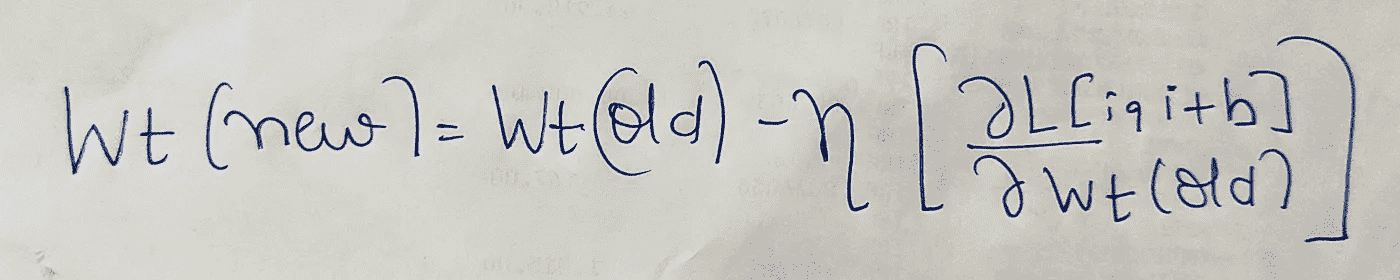 Wt (new) = Wt (old) - η [ ∂L[i, i+b] / ∂Wt (old) ]